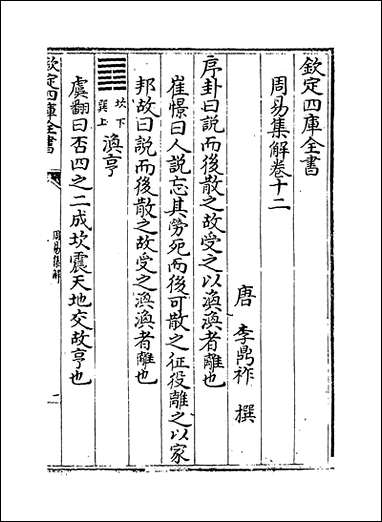 欽定四庫全書
周易集解卷十二
唐 李鼎祚 撰
序卦曰説而後散之故受之以渙渙者離也
崔憬曰人説忘其勞死而後可散之征役離之以家
邦故曰説而後散之故受之渙渙者離也
坎下
巽上
渙亨
虞翻曰否四之二成坎震天地交故亨也
欽定四庫全書
周易集解